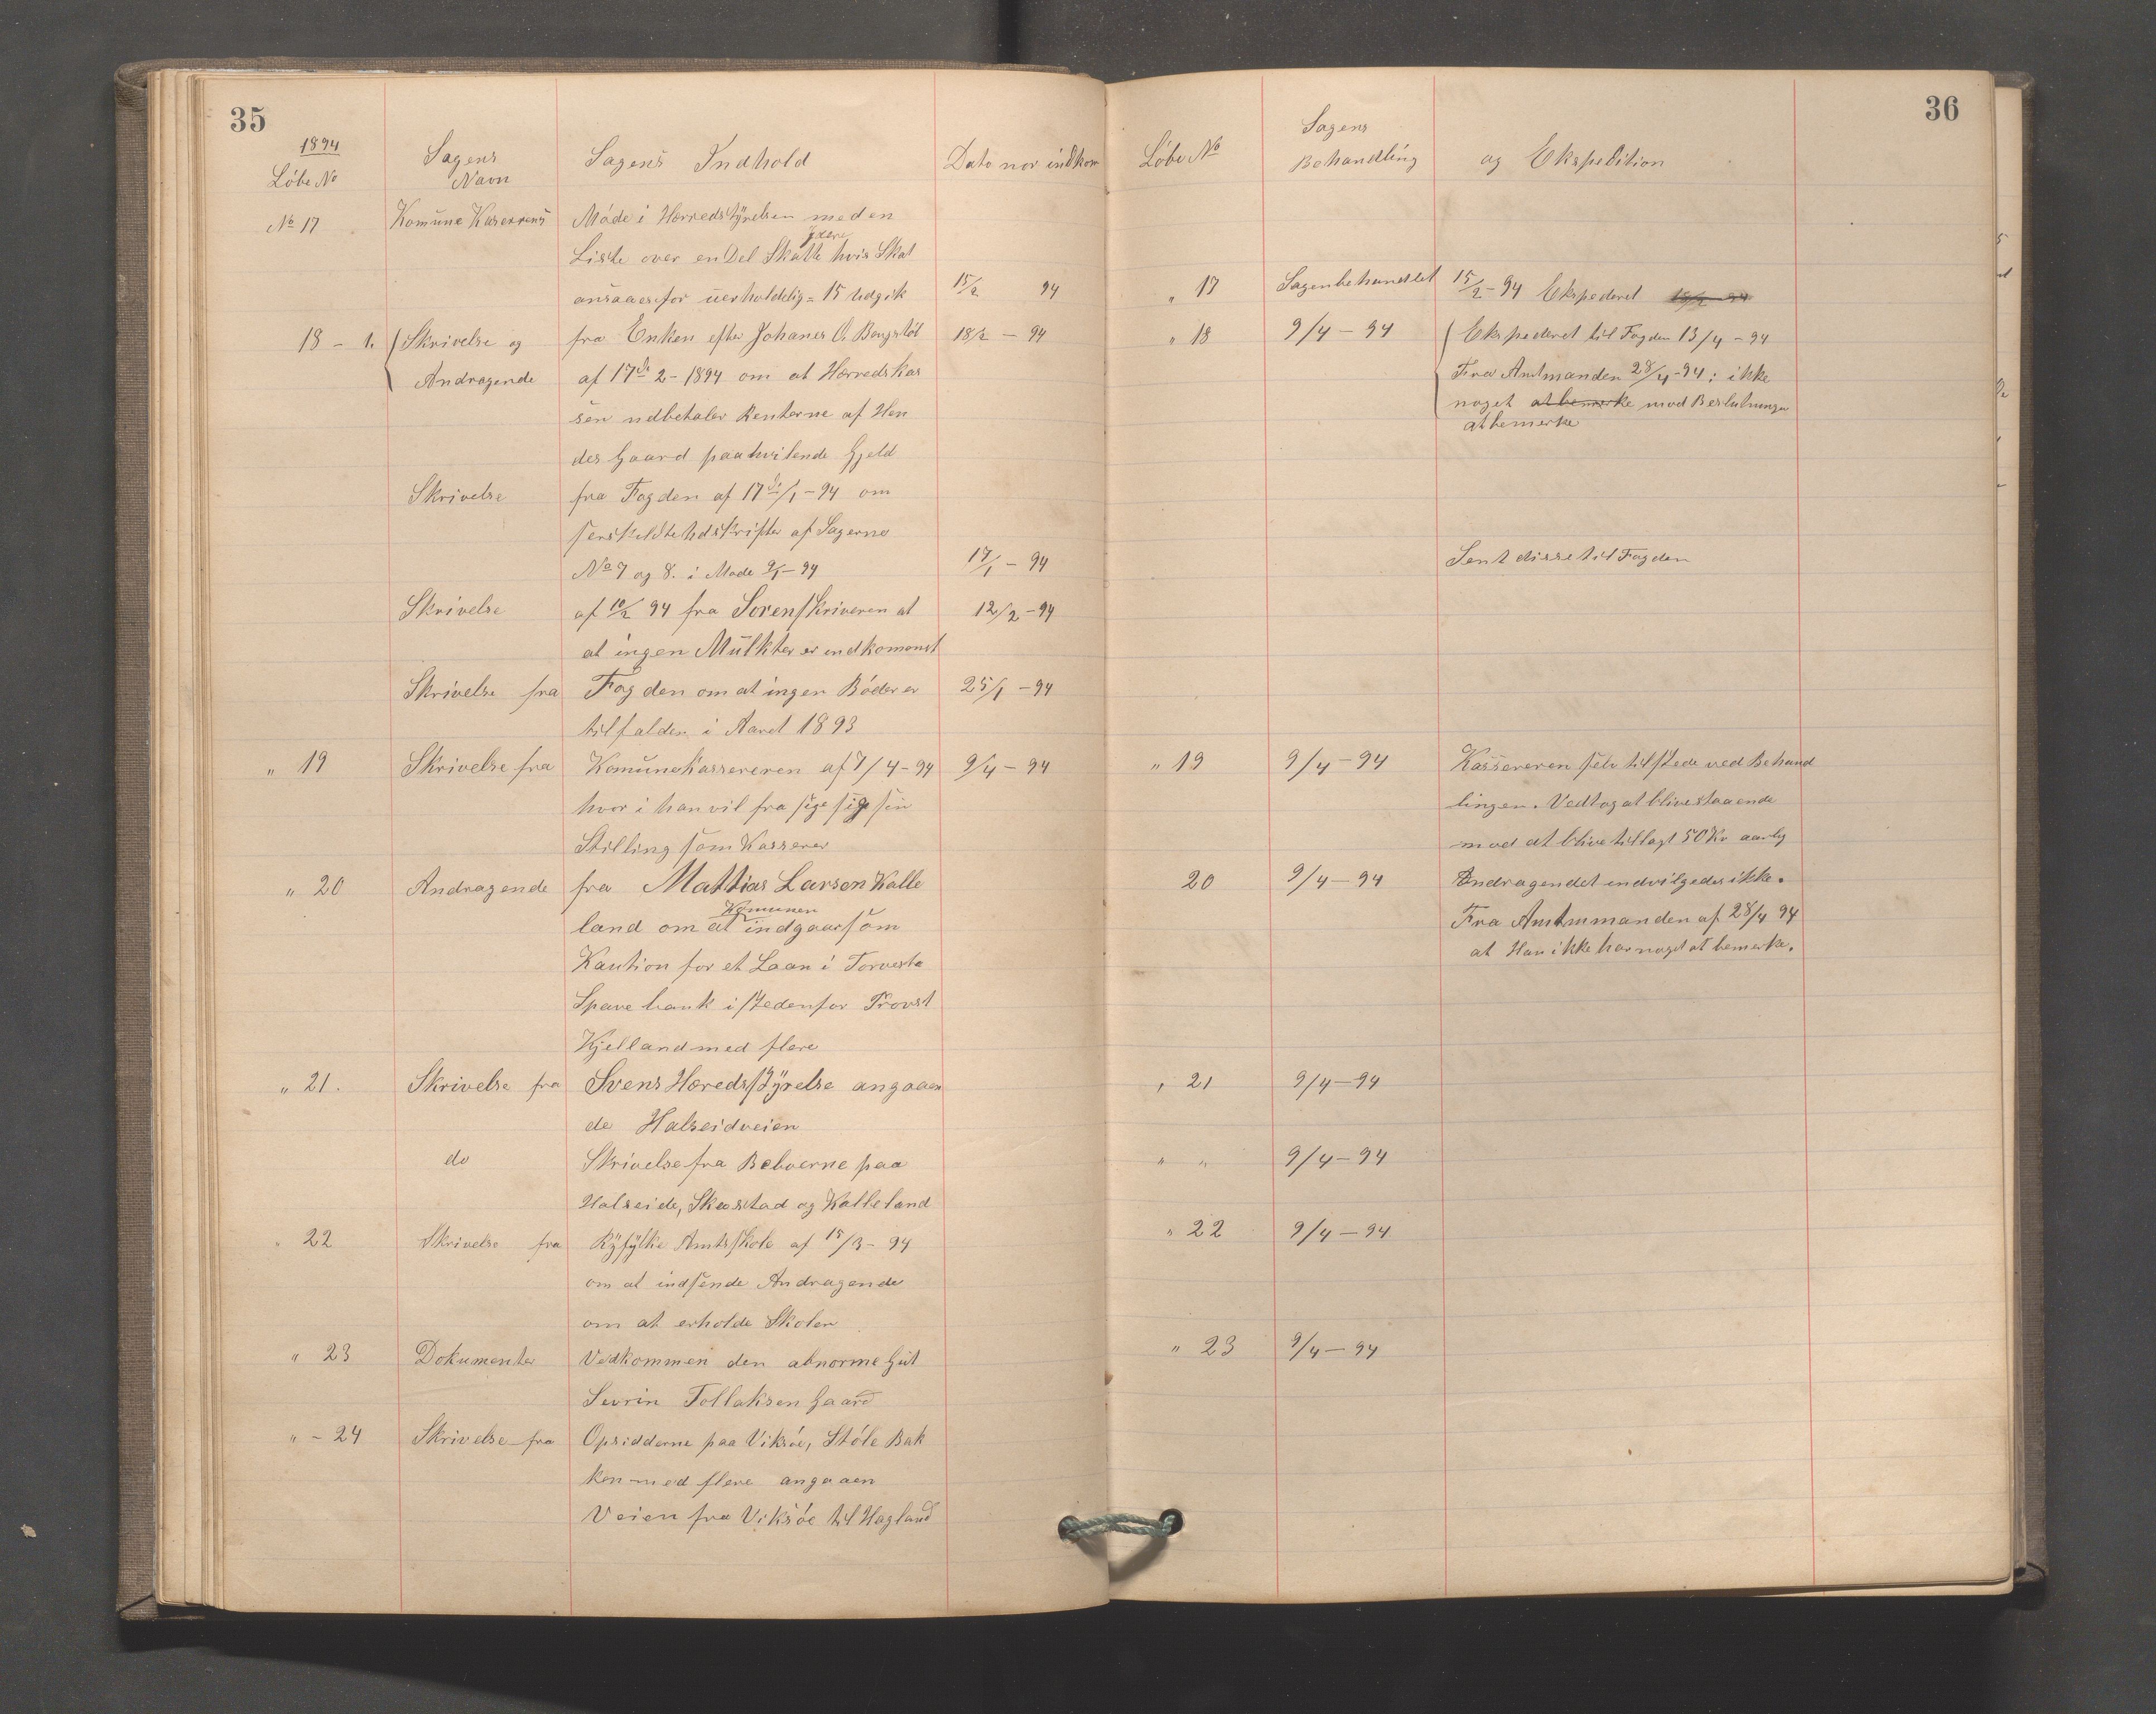 35
1894
Löbe No
Sagens Navn
Sagens Indhold
Dato nor indkom
No 17 Komune Kaserrens Möde i Herredstyrelsen med en
Liste over en Del Skatte ydere hvis Skat
ansaaes for uerholdelig = 15 Udgik 15/2 94
18 - 1. Skrivelse og fra Enken efter Johanes O. 18/2 - 94
Andragende af 17de 2 - 1894 om at Herredskas
sen udbetaler Renterne af Hen
des Gaard paahvilende Gjeld
Skrivelse fra Fogden af 17de/1 - 94 om
serskildte Udskrifter af Sagerne
No 7 og 8. i Möde 9/1 - 94 17/1 - 94
Skrivelse af 10/2 94 fra Sorenskriveren at 12/2 - 94
at ingen Mulkter er indkomenst
Skrivelse fra Fogden om at ingen Böder er 25/1 - 94
tilfalden i Aaret 1893
" 19 Skrivelse fra Komunekassereren af 7/4 - 94 9/4 - 94
hvor i han vil fra sige sige sin
Stilling som Kasserer
" 20 Andragende fra Mattias Larsen Kalle
land om at Komunen indgaar som
Kaution for et Laan i Torveste
Spare bank istedenfor Provst
Kjelland med flere
" 21. Skrivelse fra Svens Heredsstyrelse angaaen
de Halseidveien
do Skrivelse fra Beboerne paa
Halseide, Skeostad og Kalleland
22 Skrivelse fra Ryfylke Amtsskole af 15/3 - 94
om at indsende Andragende
om at erholde Skolen
" 23 Dokumenter Vedkommen den abnorme Gut
Sevrin Tollaksen Gaard
" - 24 Skrivelse fra Opsidderne paa Viksöe, Stöle Bak
ken med flere angaaen
Veien fra Viksöe til Hagland
36
Löbe No
Sagens Behandling
og Ekspedition
" 17 Sagen behandlet 15/2 - 94 Ekspederet
" 18 9/4 - 94 Ekspederet til Fogden 13/4 - 94
Fra Amtmanden 28/4 - 94: ikke
noget at bemerke mod Beslutningen
at bemerke
Sent disse til Fogden
" 19 9/4 - 94 Kassereren selv tilstede ved Behand
lingen. Vedtog at blive staaende
mod at blive tillagt 50 Kr aarlig
20 9/4 - 94 Andragendet indvilgedes ikke.
Fra Amtmmanden af 28/4 94
at Han ikke har noget at bemerke.
" 21 9/4 - 94
" " 9/4 - 94
" 22 9/4 - 94
" 23 9/4 - 94